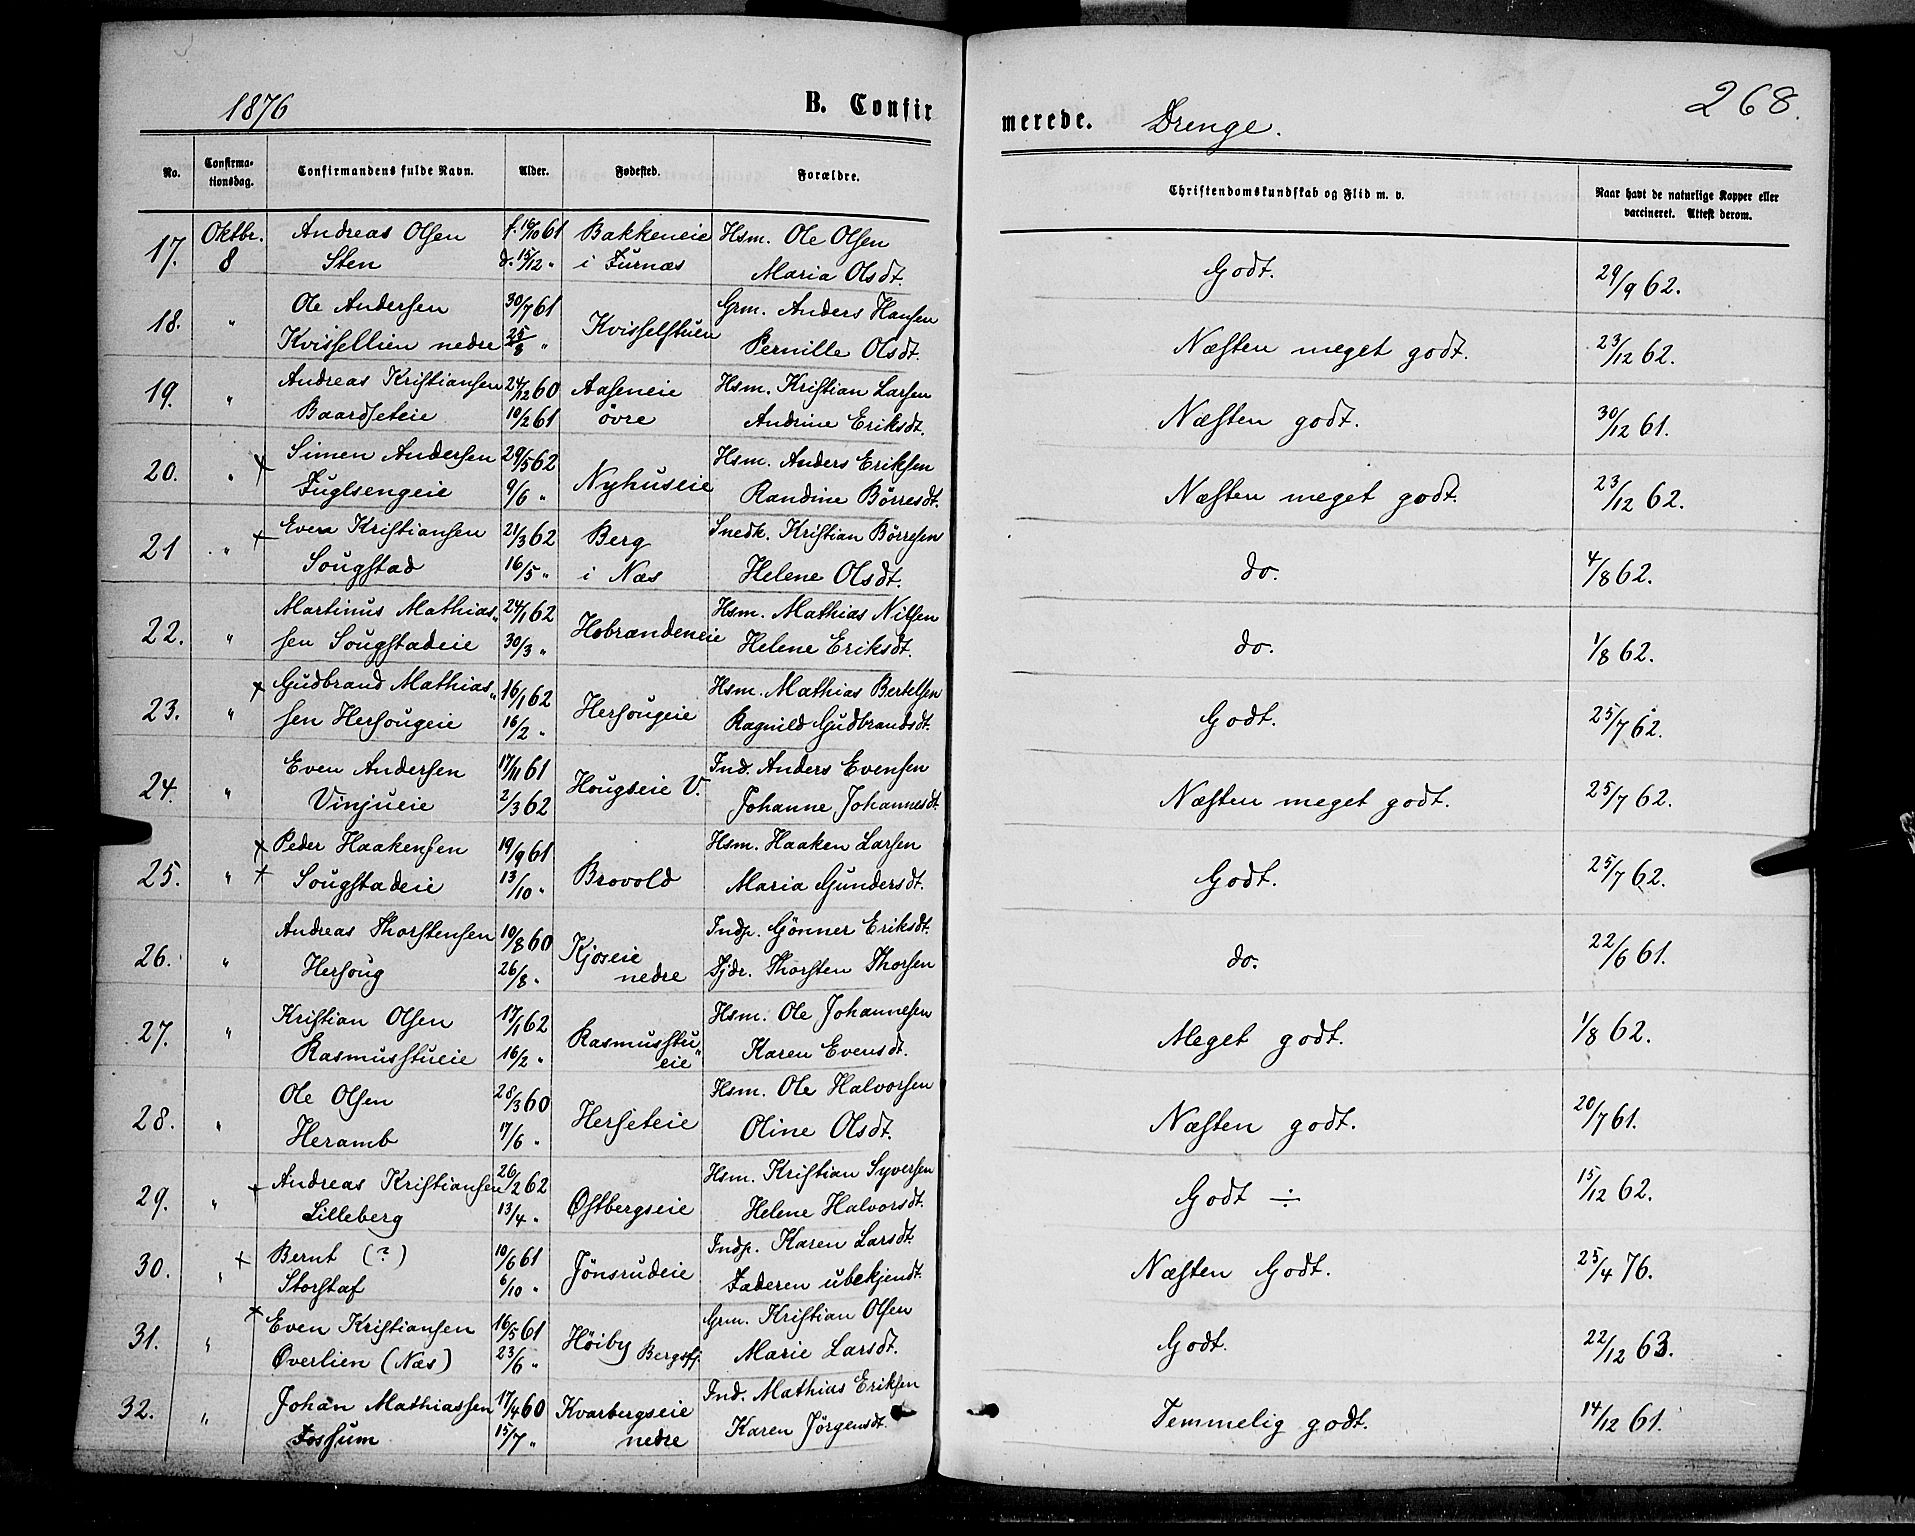 1876
B. Confirmerede. Drenge.
268.
No. | Confirmationsdag. | Confirmandens fulde Navn. | Alder. | Fødested. | Forældre. | Christendomskundskab og Flid m. v. | Naar havt de naturlige Kopper eller vaccineret. Attest derom.
17. Oktbr. Andreas Olsen f. 16/10 61 Bakkeneie Hsm. Ole Olsen Godt. 29/9 62.
8 Sten d. 15/12 „ i Furnæs Maria Olsdt.
18. „ Ole Andersen 30/7 61 Kvisselstuen Grm. Anders Hansen Næsten meget godt. 23/12 62.
Kvissellien nedre 25/8 „ Pernille Olsdt.
19. „ Andreas Kristiansen 24/12 60 Aaseneie Hsm. Kristian Larsen Næsten godt. 30/12 61.
Baardseteie 10/2 61 övre Andrine Eriksdt.
20. „ + Simen Andersen 29/5 62 Nyhuseie Hsm. Anders Eriksen Næsten meget godt. 23/12 62.
Fuglsengeie 9/6 „ Randine Börresdt.
21 „ + Even Kristiansen 21/3 62 Berg Snedk. Kristian Börresen do. 4/8 62.
Sougstad 16/5 „ i Næs Helene Olsdt.
22. „ Martinus Mathias„ 24/1 62 Hobrændeneie Hsm. Mathias Nilsen do. 1/8 62.
sen Sougstadeie 30/3 „ Helene Eriksdt.
23. „ + Gudbrand Mathias„ 16/1 62 Hersougeie Hsm. Mathias Bertelsen Godt. 25/7 62.
sen Hersougeie 16/2 „ Ragnild Gudbrandsdt.
24. „ Even Andersen 17/11 61 Hougseie V. Ind. Anders Evensen Næsten meget godt. 25/7 62.
Vinjueie 2/3 62 Johanne Johannesdt.
25. „ + Peder Haakensen 19/9 61 Brovold Hsm. Haaken Larsen Godt. 25/7 62.
+ Sougstadeie 13/10 „ Maria Gundersdt.
26. „ Andreas Thorstensen 10/8 60 Kjoseie Indp. Gönner Eriksdt. do. 22/6 61.
Hersoug 26/8 „ nedre Thorsten Thorsen
27. „ Kristian Olsen 17/1 62 Rasmusstu„ Hsm. Ole Johannesen Meget godt. 1/8 62.
Rasmusstueie 16/2 „ eie Karen Evensdt.
28. „ Ole Olsen 28/3 60 Herseteie Hsm. Ole Halvorsen Næsten godt. 20/7 61.
Heramb 17/6 „ Oline Olsdt.
29. „ + Andreas Kristiansen 26/2 62 Østbergseie Hsm. Kristian Syversen Godt ÷ 15/12 62.
Lilleberg 13/4 „ Helene Halvorsdt.
30. „ + Bernt (?) 10/6 61 Jönsrudeie Indp. Karen Larsdt. Næsten Godt. 25/4 76.
Storstaf 6/10 „ Faderen ubekjendt.
31. „ + Even Kristiansen 16/5 61 Höiby Grm. Kristian Olsen Godt. 22/12 63.
Øverlien (Næs) 23/6 „ Marie Larsdt.
32. „ Johan Mathiassen 17/4 60 Kvarbergseie Ind. Mathias Eriksen Temmelig godt. 14/12 61.
Fossum 15/7 „ nedre Karen Jörgensdt.